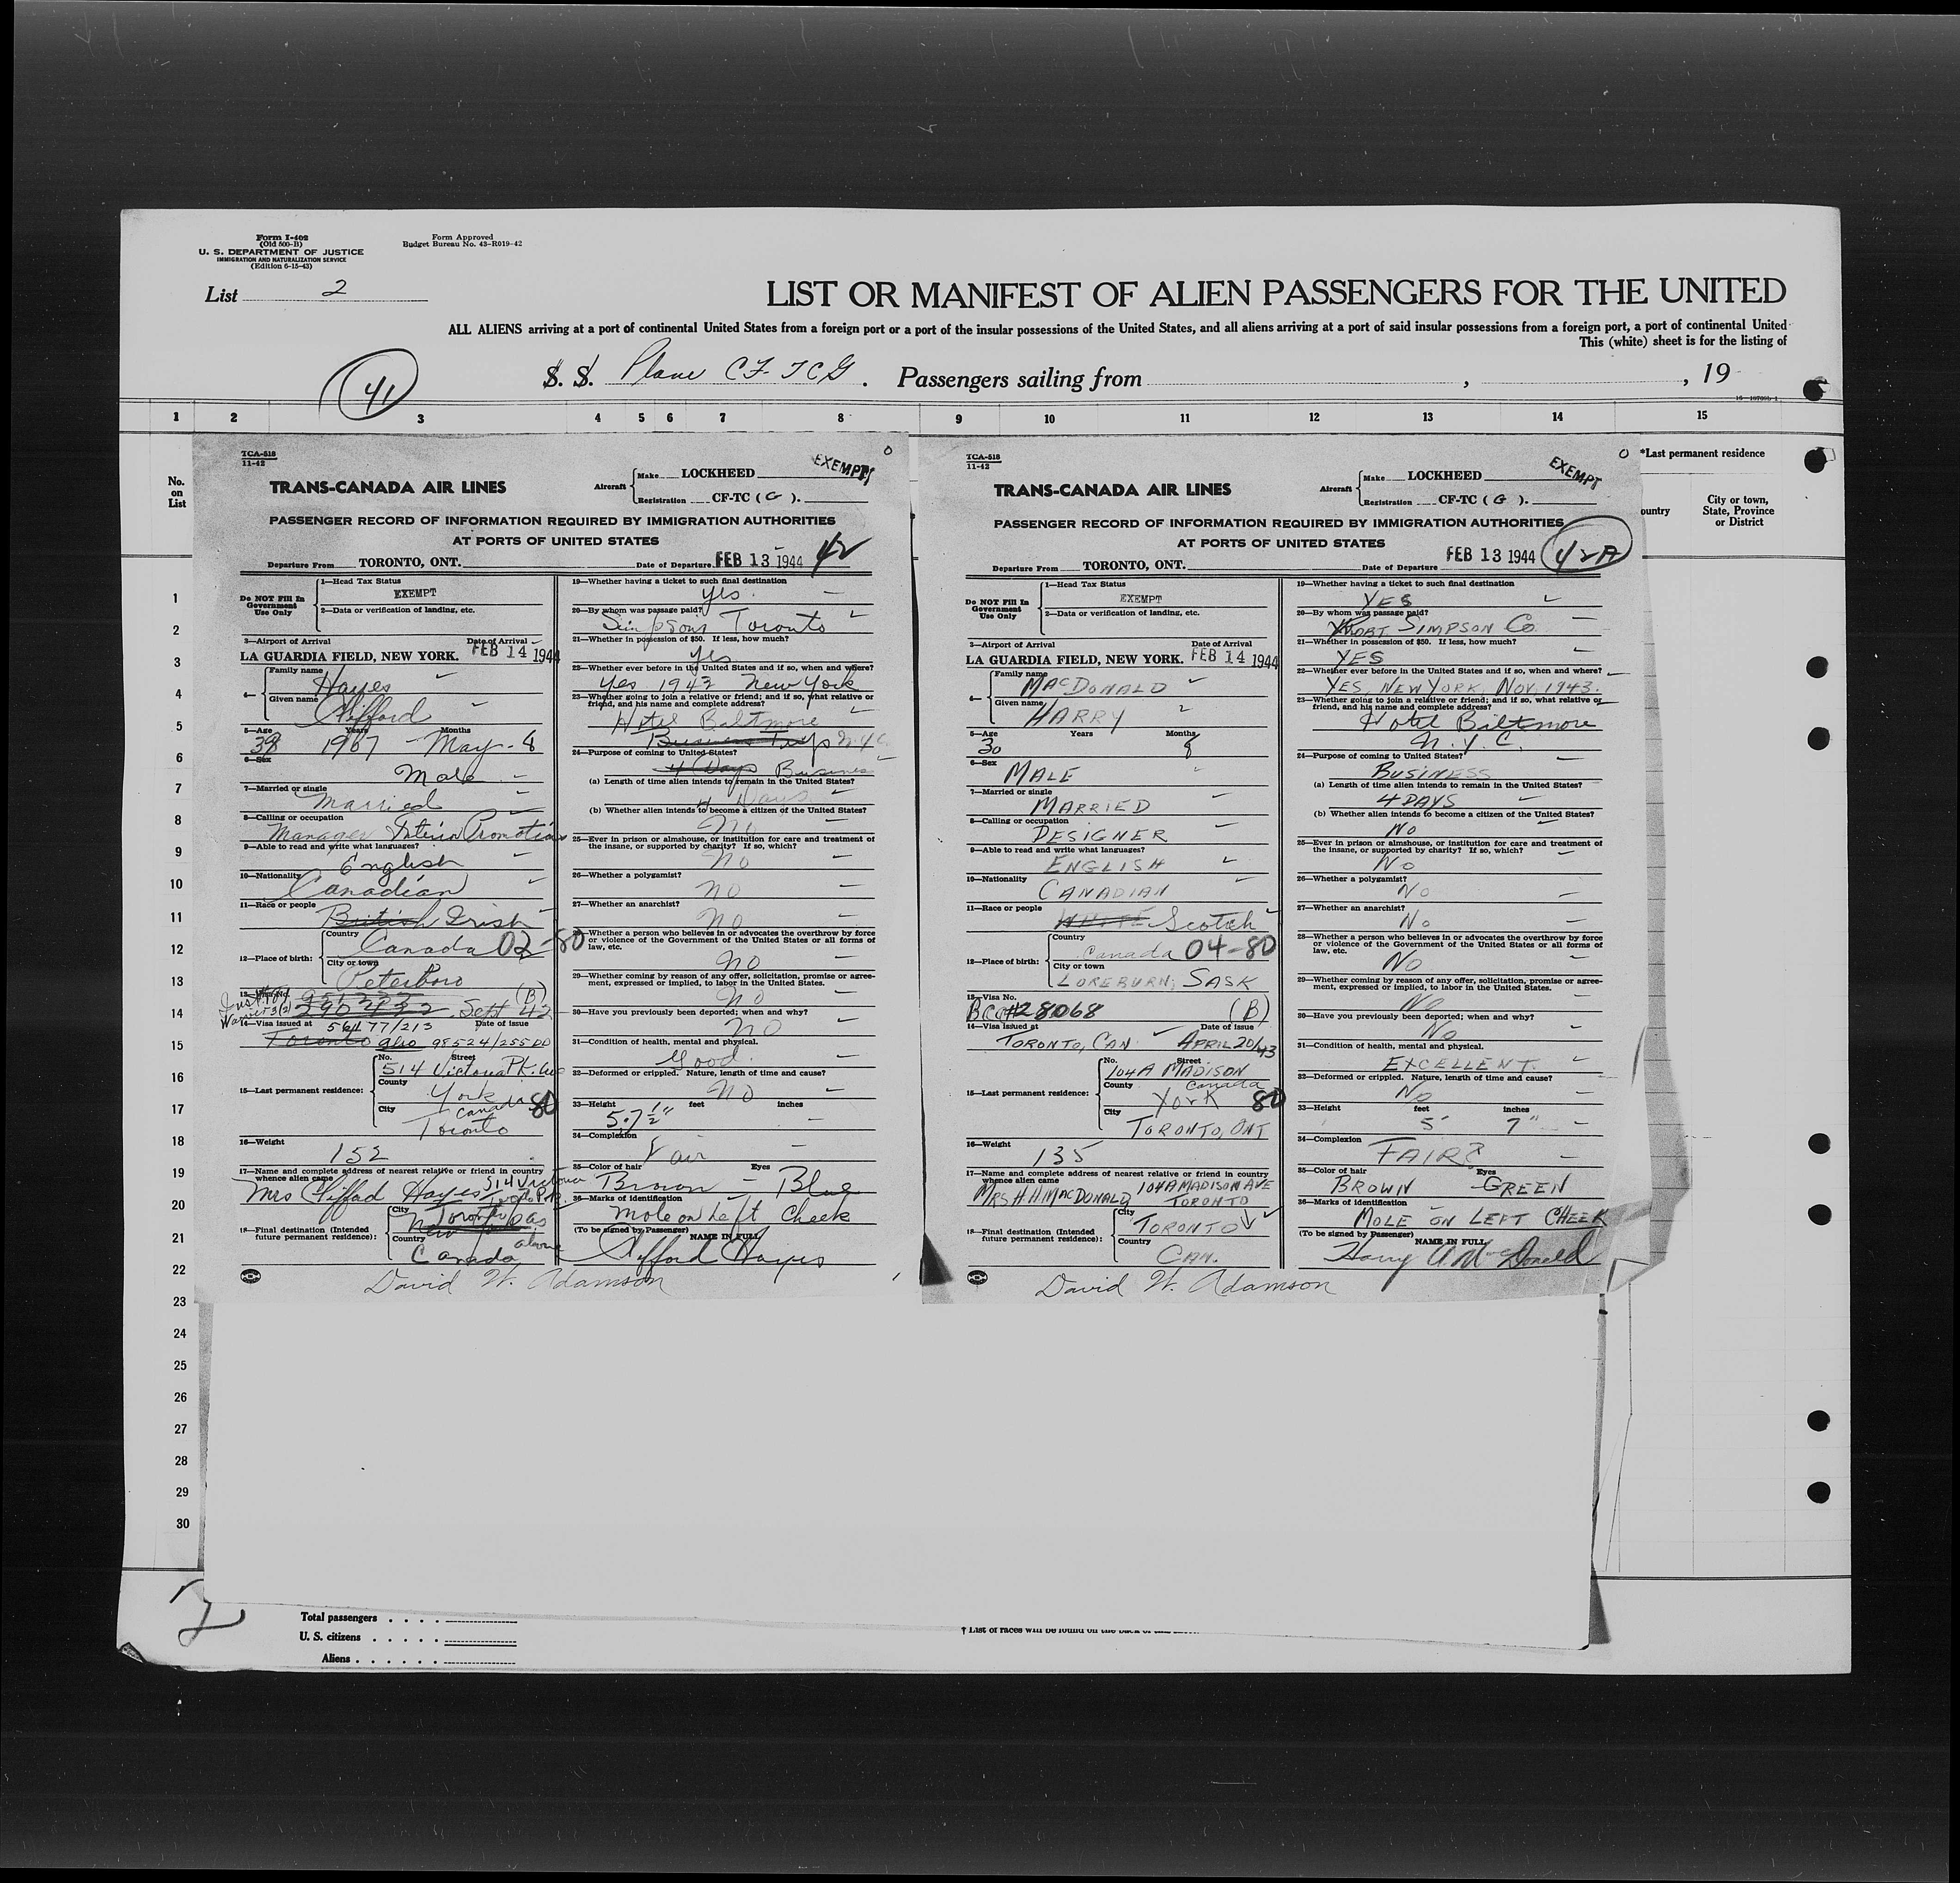 Form I-402
(Old 500-B)
U. S. DEPARTMENT OF JUSTICE
IMMIGRATION AND NATURALIZATION SERVICE
(Edition 6-15-43)
Form Approved
Budget Bureau No. 43-R019-42
List 2
LIST OR MANIFEST OF ALIEN PASSENGERS FOR THE UNITED
ALL ALIENS arriving at a port of continental United States from a foreign port or a port of the insular possessions of the United States, and all aliens arriving at a port of said insular possessions from a foreign port, a port of continental United
This (white) sheet is for the listing of
41
S. S. Plane CF-TCG. Passengers sailing from , , 19
1 2 3 4 5 6 7 8 9 10 11 12 13 14 15
No.
on
List
TCA-518
11-42
TRANS-CANADA AIR LINES
Aircraft Make LOCKHEED
Registration CF-TC ( G ).
EXEMPT
PASSENGER RECORD OF INFORMATION REQUIRED BY IMMIGRATION AUTHORITIES
AT PORTS OF UNITED STATES
Departure From TORONTO, ONT. Date of Departure FEB 13 1944 42
Do NOT Fill In
Government
Use Only
1—Head Tax Status
EXEMPT
2—Data or verification of landing, etc.
3—Airport of Arrival Date of Arrival
LA GUARDIA FIELD, NEW YORK. FEB 14 1944
4— Family name
Hayes
Given name
Clifford
5—Age Years Months
38 1907 May-8
6—Sex
Male
7—Married or single
Married
8—Calling or occupation
Manager Interior Promotion
9—Able to read and write what languages?
English
10—Nationality
Canadian
11—Race or people
British Irish
12—Place of birth: Country
Canada 02-80
City or town
Peterboro
13—Visa No.
(B)
Sept 42
14—Visa issued at 56177/213 Date of issue
Toronto also 98524/255
15—Last permanent residence: No. Street
514 Victoria Pk. Ave
County
York
Canada 80
City
Toronto
16—Weight
152
17—Name and complete address of nearest relative or friend in country
whence alien came
Mrs Clifford Hayes 514 Victoria
18—Final destination (Intended
future permanent residence): City
Toronto as
Country
Canada above
19—Whether having a ticket to such final destination
yes
20—By whom was passage paid?
Simpsons Toronto
21—Whether in possession of $50. If less, how much?
yes
22—Whether ever before in the United States and if so, when and where?
Yes 1942 New York
23—Whether going to join a relative or friend; and if so, what relative or
friend, and his name and complete address?
Hotel Baltmore
Business Trip N.Y.C.
24—Purpose of coming to United States?
4 Days Business
(a) Length of time alien intends to remain in the United States?
4 Days
(b) Whether alien intends to become a citizen of the United States?
No
25—Ever in prison or almshouse, or institution for care and treatment of
the insane, or supported by charity? If so, which?
No
26—Whether a polygamist?
No
27—Whether an anarchist?
No
28—Whether a person who believes in or advocates the overthrow by force
or violence of the Government of the United States or all forms of
law, etc.
No
29—Whether coming by reason of any offer, solicitation, promise or agree-
ment, expressed or implied, to labor in the United States.
No
30—Have you previously been deported; when and why?
No
31—Condition of health, mental and physical.
Good
32—Deformed or crippled. Nature, length of time and cause?
No
33—Height feet inches
5.7½"
34—Complexion
Fair
35—Color of hair Eyes
Brown - Blue
36—Marks of identification
Mole on Left Cheek
(To be signed by Passenger) NAME IN FULL
Clifford Hayes
David W. Adamson
TCA-518
11-42
TRANS-CANADA AIR LINES
Aircraft Make LOCKHEED
Registration CF-TC ( G ).
EXEMPT
PASSENGER RECORD OF INFORMATION REQUIRED BY IMMIGRATION AUTHORITIES
AT PORTS OF UNITED STATES
Departure From TORONTO, ONT. Date of Departure FEB 13 1944 42A
Do NOT Fill In
Government
Use Only
1—Head Tax Status
EXEMPT
2—Data or verification of landing, etc.
3—Airport of Arrival Date of Arrival
LA GUARDIA FIELD, NEW YORK. FEB 14 1944
4— Family name
MACDONALD
Given name
HARRY
5—Age Years Months
30 8
6—Sex
MALE
7—Married or single
MARRIED
8—Calling or occupation
DESIGNER
9—Able to read and write what languages?
ENGLISH
10—Nationality
CANADIAN
11—Race or people
WHITE Scotch
12—Place of birth: Country
Canada 04-80
City or town
LOREBURN, SASK
13—Visa No.
28068 (B)
14—Visa issued at Date of issue
TORONTO, CAN APRIL 20/43
15—Last permanent residence: No. Street
104A MADISON
County Canada
YORK 80
City
TORONTO, ONT
16—Weight
135
17—Name and complete address of nearest relative or friend in country
whence alien came
MRS H H MACDONALD 104A MADISON AVE
TORONTO
18—Final destination (Intended
future permanent residence): City
TORONTO
Country
CAN.
19—Whether having a ticket to such final destination
YES
20—By whom was passage paid?
ROBT SIMPSON CO.
21—Whether in possession of $50. If less, how much?
YES
22—Whether ever before in the United States and if so, when and where?
YES, NEW YORK, NOV. 1943.
23—Whether going to join a relative or friend; and if so, what relative or
friend, and his name and complete address?
Hotel Biltmore
N.Y.C.
24—Purpose of coming to United States?
BUSINESS
(a) Length of time alien intends to remain in the United States?
4 DAYS
(b) Whether alien intends to become a citizen of the United States?
NO
25—Ever in prison or almshouse, or institution for care and treatment of
the insane, or supported by charity? If so, which?
NO
26—Whether a polygamist?
NO
27—Whether an anarchist?
NO
28—Whether a person who believes in or advocates the overthrow by force
or violence of the Government of the United States or all forms of
law, etc.
NO
29—Whether coming by reason of any offer, solicitation, promise or agree-
ment, expressed or implied, to labor in the United States.
NO
30—Have you previously been deported; when and why?
NO
31—Condition of health, mental and physical.
EXCELLENT.
32—Deformed or crippled. Nature, length of time and cause?
NO
33—Height feet inches
5' 7"
34—Complexion
FAIR
35—Color of hair Eyes
BROWN -GREEN
36—Marks of identification
MOLE ON LEFT CHEEK
(To be signed by Passenger) NAME IN FULL
Harry MacDonald
David W. Adamson
*Last permanent residence
ountry
City or town,
State, Province
or District
1
2
3
4
5
6
7
8
9
10
11
12
13
14
15
16
17
18
19
20
21
22
23
24
25
26
27
28
29
30
2
Total passengers
U. S. citizens
Aliens
† List of races will be found on the back of this